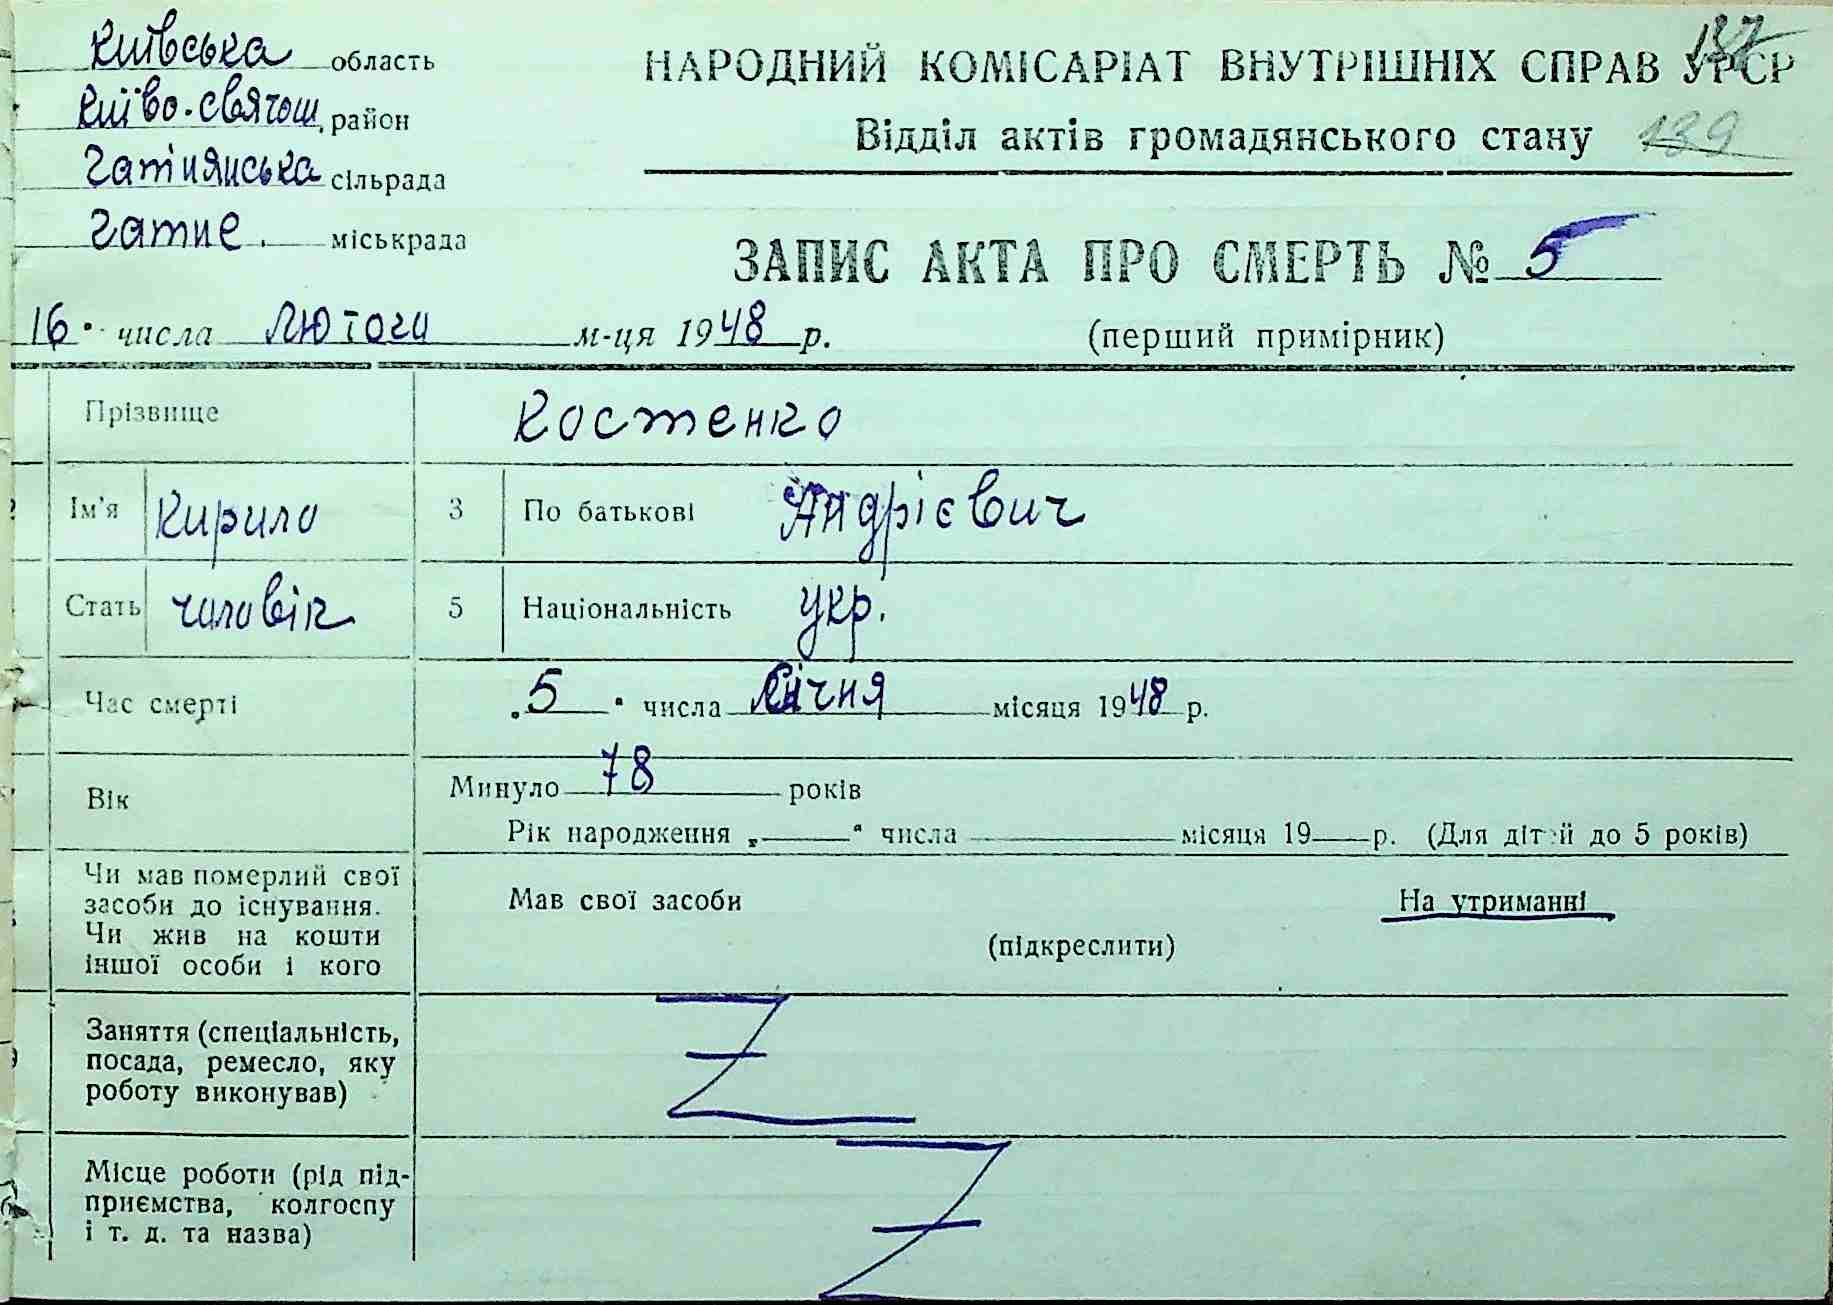 Київська область
Київо-Святош. район
Гатнянська сільрада
Гатне. міськрада
НАРОДНИЙ КОМІСАРІАТ ВНУТРІШНІХ СПРАВ УРСР
137
Відділ актів громадянського стану 139
ЗАПИС АКТА ПРО СМЕРТЬ № 5
16 " числа лютого м-ця 1948 р. (перший примірник)
Прізвище Костенко
Ім'я Кирило 3 По батькові Андрієвич
Стать чиловік 5 Національність укр.
Час смерті „5" числа січня місяця 1948 р.
Вік Минуло 78 років
Рік народження „ " числа місяця 19 р. (Для дітей до 5 років)
Чи мав померлий свої
засоби до існування.
Чи жив на кошти
іншої особи і кого
Мав свої засоби На утриманні
(підкреслити)
Заняття (спеціальність,
посада, ремесло, яку
роботу виконував)
Місце роботи (рід під-
приємства, колгоспу
і т. д. та назва)